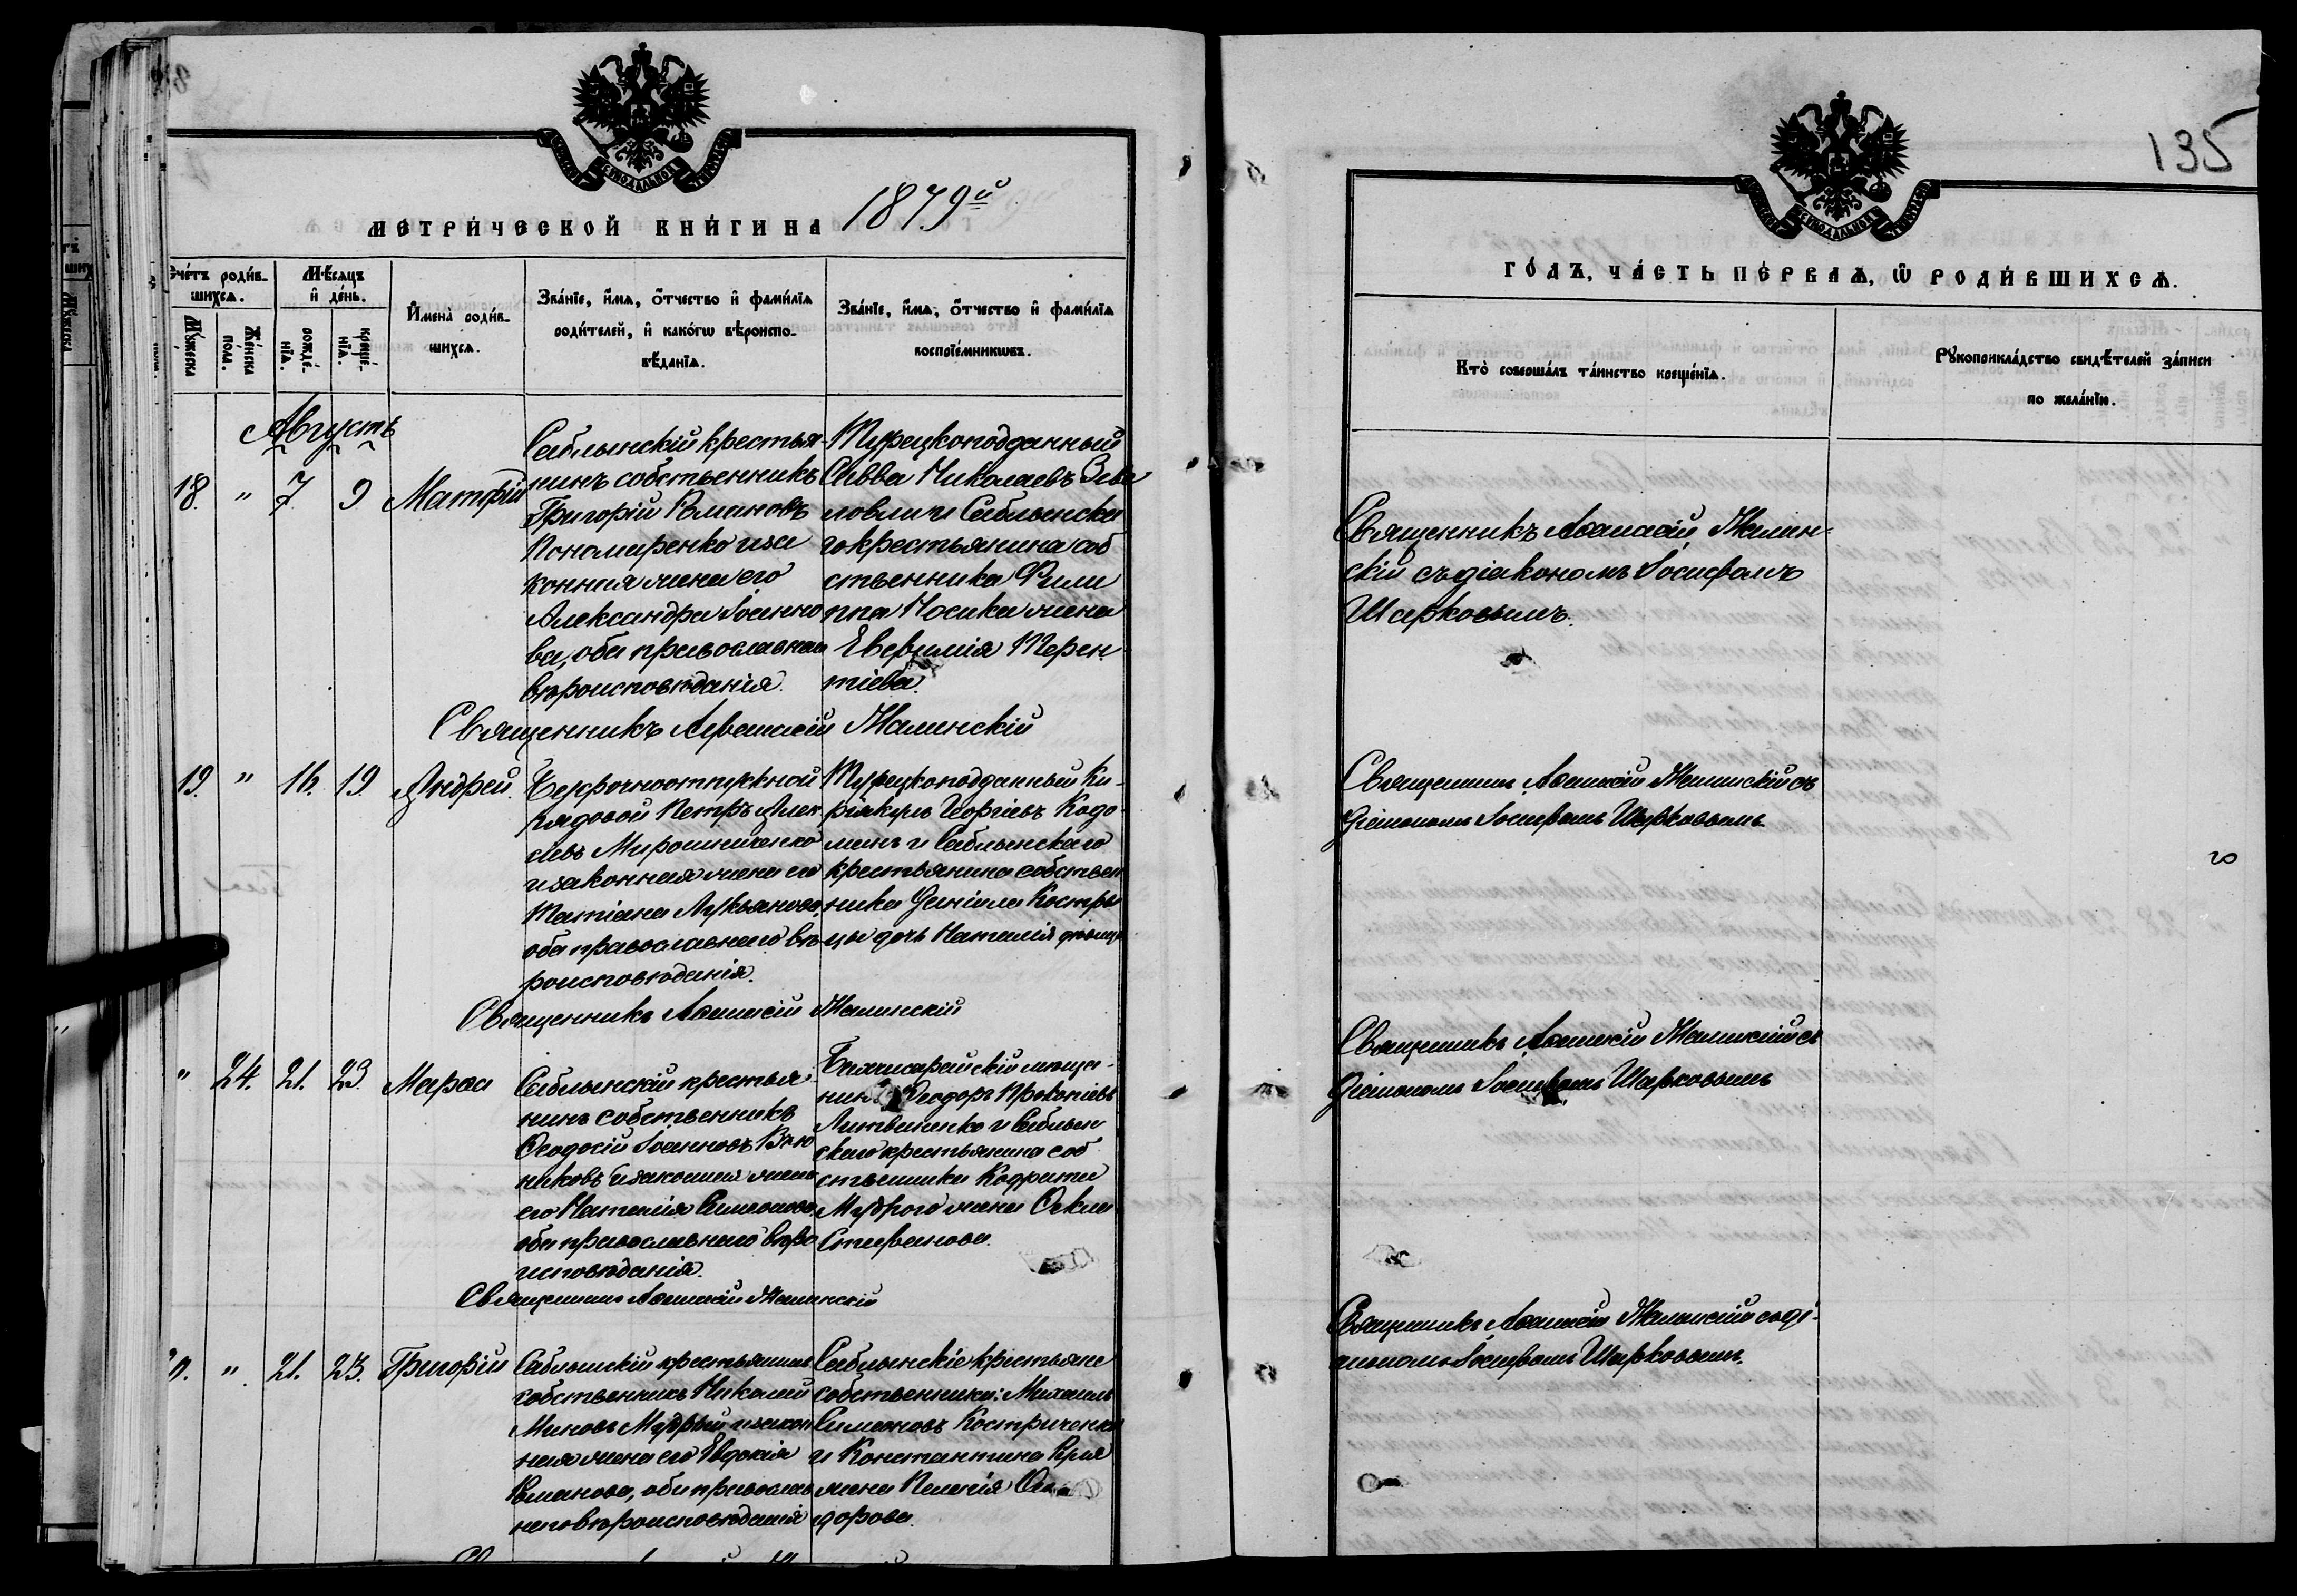 135
МЕТРИЧЕСКОЙ КНИГИ НА 1879й
ГОДЪ, ЧАСТЬ ПЕРВАЯ, Ѡ РОДИВШИХСЯ.
Счетъ родившихся.
Мужеска
Женска пола.
Мѣсяцъ и день.
рожденїя.
крещенїя.
Имена родившихся.
Званїе, имя, отчество и фамилїа родителей, и какогѡ вѣроисповѣданїя.
Званїе, имя, отчество и фамилїа воспрїемникѡвъ.
Кто совершалъ таинство крещенїя.
Рукоприкладство свидѣтелей записи по желанїю.
Августъ
18. " 7 9 Матфій
Саблынскій крестья-
нинъ собственникъ
Григорій Романовъ
Пономаренко и за
конная жена его
Александра Іоанно
ва, оба православнаго
вѣроисповѣданія.
Турецкоподданный
Савва Николаевъ
и Саблынска
го крестьянина соб
ственника Фили
ппа Носика жена
Евфимія Терен
тіева.
Священникъ Аѳанасій Жалин-
скій съ діакономъ Іосифомъ
Шарковымъ.
Священникъ Аѳанасій Жалинскій
19. " 16. 19. Андрей.
Безсрочноотпускной
рядовой Петръ Алек
сѣевъ Мирошниченко
и законная жена его
Татіана Лукьянова,
оба православнаго вѣ
роисповѣданія.
Турецкоподданный Ки-
ріякулъ Георгіевъ
и Саблынскаго
крестьянина собствен
ника Даніила
дочь Наталія дѣвица
Священникъ Аѳанасій Жалинскій съ
діакономъ Іосифомъ Шарковымъ
Священникъ Аѳанасій Жалинскій
" 24. 21. 23. Марѳа
Саблынскій крестья
нинъ собственникъ
Ѳеодосій Іоанновъ
и законная жена
его Наталія Симеонова
оба православнаго вѣро
исповѣданія.
Бахчисарайскій мѣща-
нинъ Ѳеодоръ Прокопіевъ
Литвиненко и Саблын
скаго крестьянина соб
ственника Кодрата
Мудраго жена Ѳекла
Стефанова.
Священникъ Аѳанасій Жалинскій съ
діакономъ Іосифомъ Шарковымъ
Священникъ Аѳанасій Жалинскій
0. " 21. 23. Григорій
Саблынскій крестьянинъ
собственникъ Николай
Миновъ Мудрый и закон
ная жена его Евдокія
Романова, оба православ
наго вѣроисповѣданія
Саблынскіе крестьяне
собственники: Михаилъ
Симеоновъ Костриченко
и Константина
жена Пелагія Ѳео
дорова.
Священникъ Аѳанасій Жалинскій съ ді-
акономъ Іосифомъ Шарковымъ.